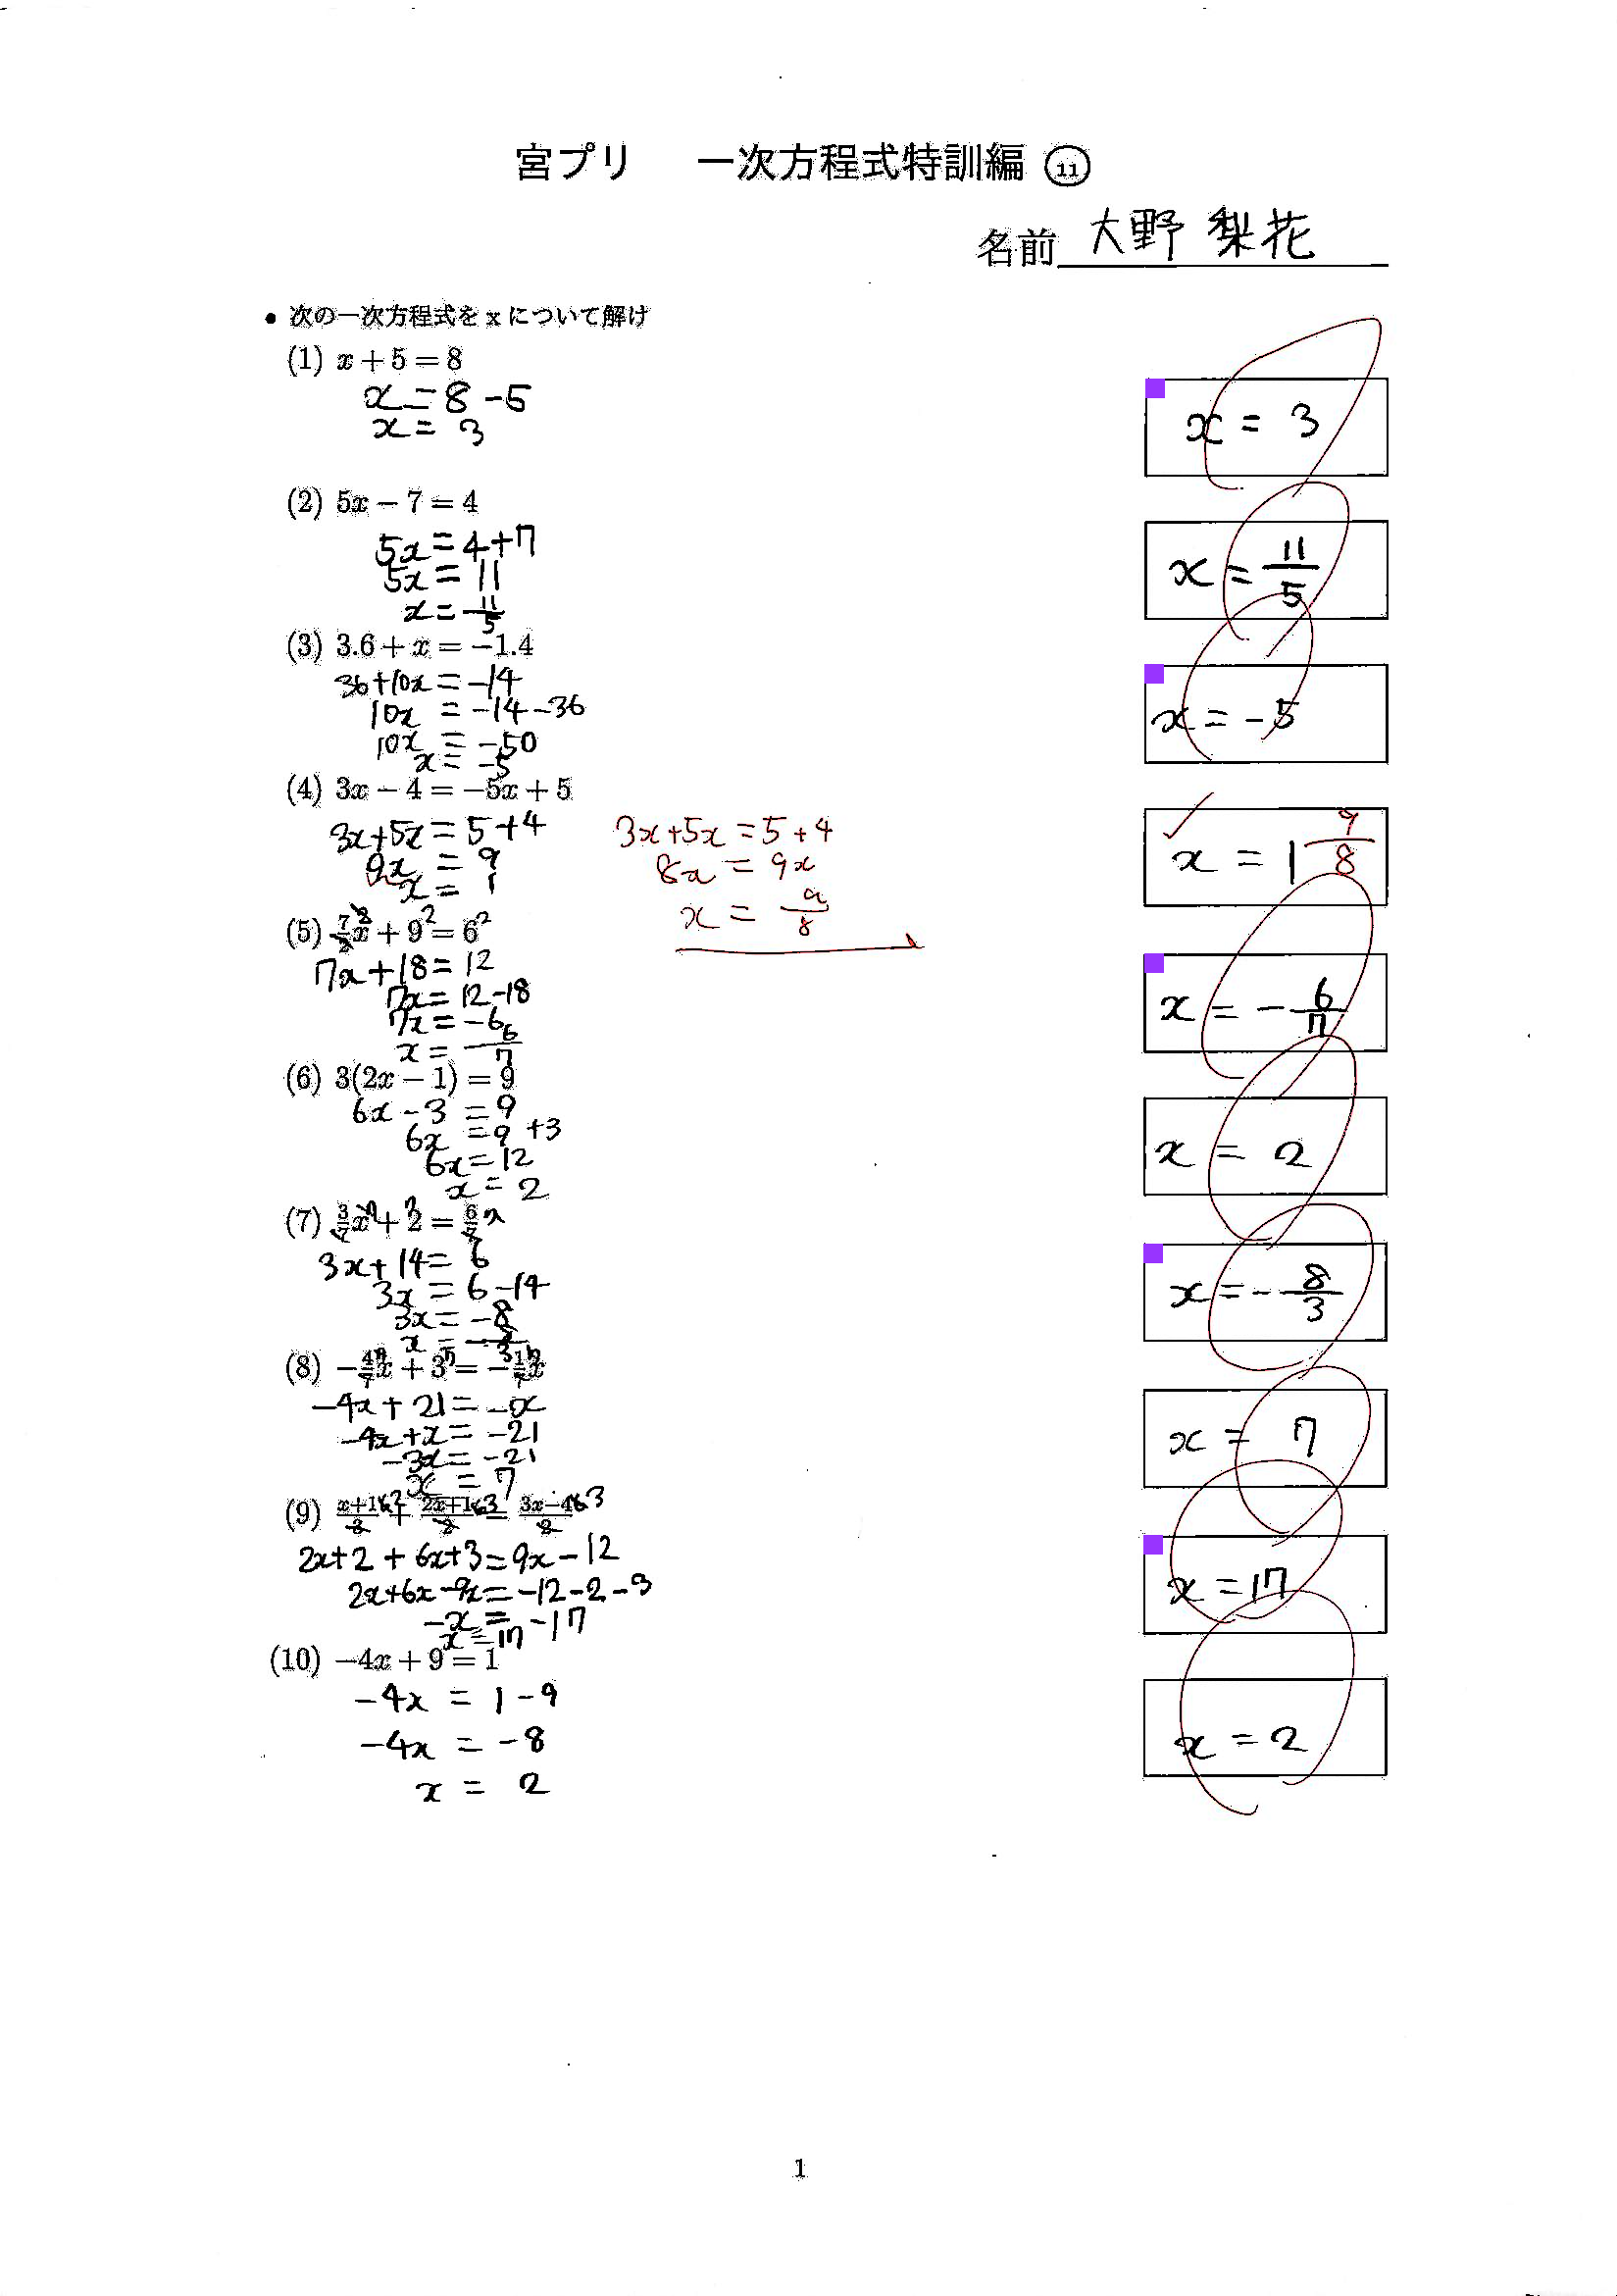 宮プリ 一次方程式特訓編 ⑪
名前 大野 梨花
• 次の一次方程式を x について解け
(1) x + 5 = 8
x = 8 - 5
x = 3
x = 3
(2) 5x − 7 = 4
5x = 4 + 7
5x = 11
x = 11/5
x = 11/5
(3) 3.6 + x = −1.4
36 + 10x = -14
10x = -14 - 36
10x = -50
x = -5
x = -5
(4) 3x − 4 = −5x + 5
3x + 5x = 5 + 4
9x = 9
x = 1
3x + 5x = 5 + 4
8x = 9x
x = 9/8
x = 1 9/8
(5) 7/2 x + 9 = 6
7x + 18 = 12
7x = 12 - 18
7x = -6
x = -6/7
x = -6/7
(6) 3(2x − 1) = 9
6x - 3 = 9
6x = 9 + 3
6x = 12
x = 2
x = 2
(7) 3/7 x + 2 = 6/7
3x + 14 = 6
3x = 6 - 14
3x = -8
x = -8/3
x = -8/3
(8) −4/7 x + 3 = −1/7 x
-4x + 21 = -x
-4x + x = -21
-3x = -21
x = 7
x = 7
(9) x+1/3 + 2x+1/2 = 3x−4/2
2x + 2 + 6x + 3 = 9x - 12
2x + 6x - 9x = -12 - 2 - 3
-x = -17
x = 17
x = 17
(10) −4x + 9 = 1
-4x = 1 - 9
-4x = -8
x = 2
x = 2
1